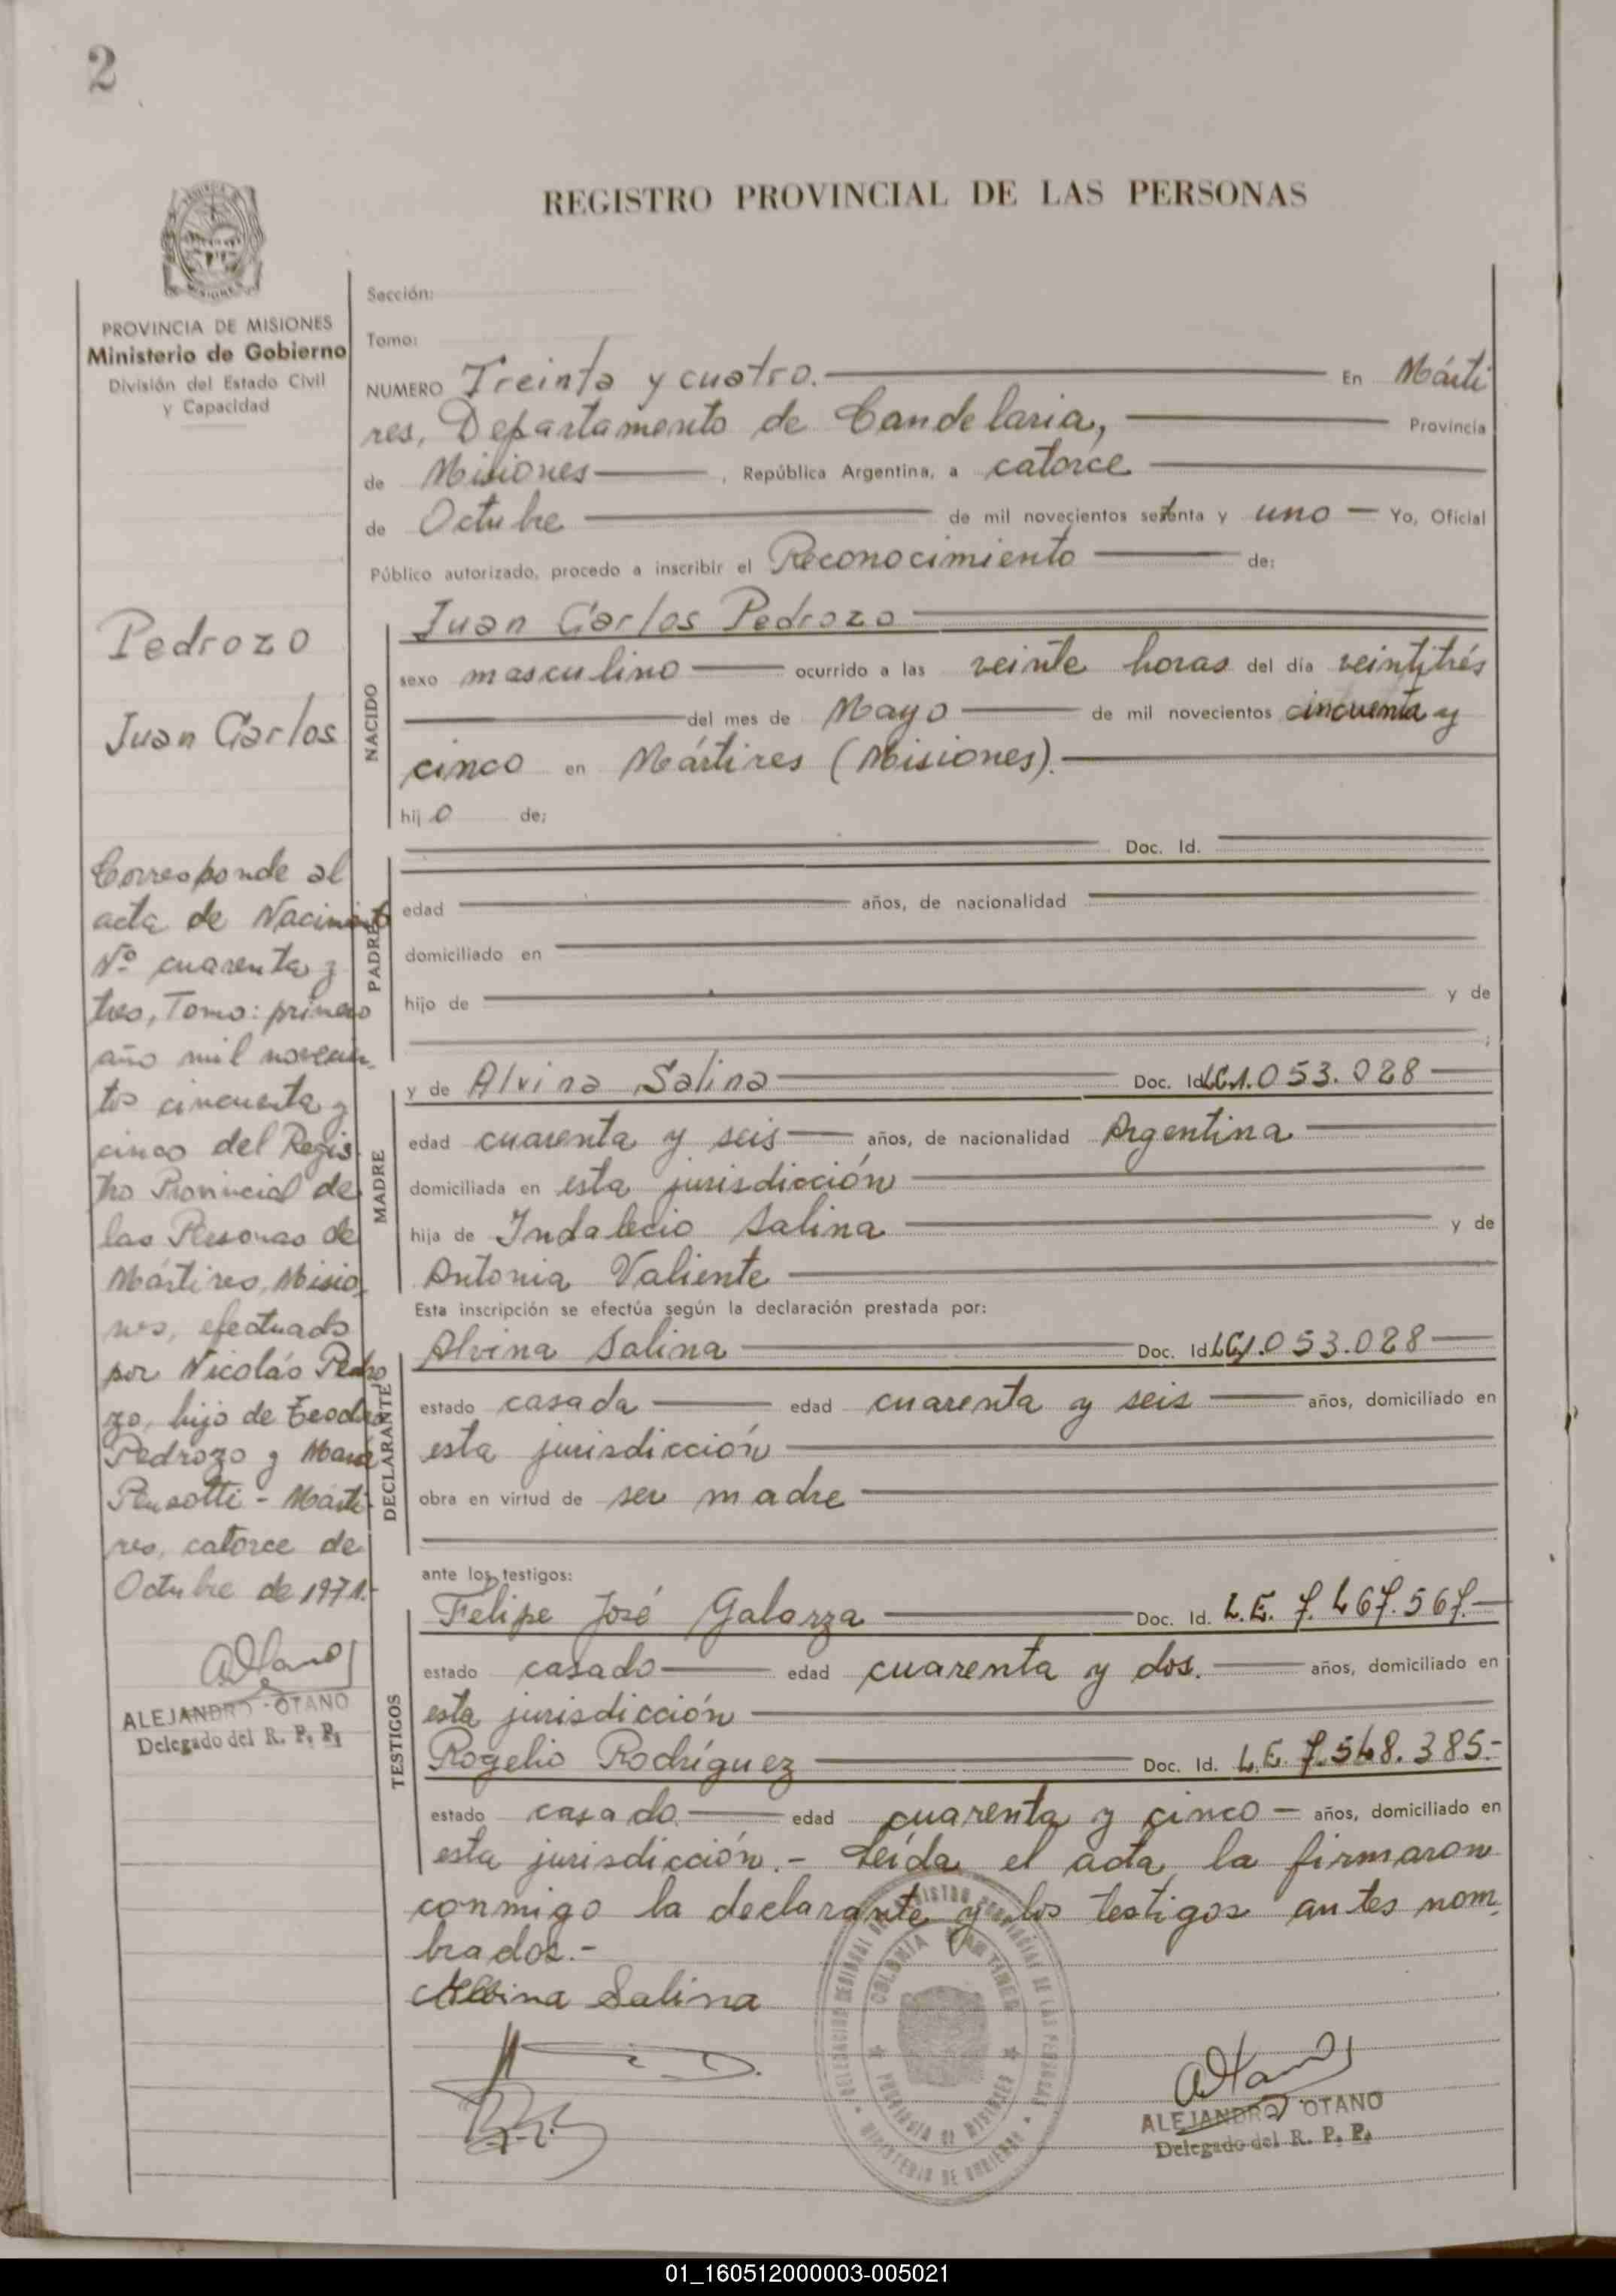 2
REGISTRO PROVINCIAL DE LAS PERSONAS
PROVINCIA DE MISIONES
Ministerio de Gobierno
División del Estado Civil
y Capacidad
Pedrozo
Juan Carlos
Corresponde al
acta de Nacimiento
Nº cuarenta y
tres, Tomo: primero
año mil novecien-
tos cincuenta y
cinco del Regis
tro Provincial de
las Personas de
Mártires, Misio-
nes, efectuado
por Nicolás Pedro
zo, hijo de Teodoro
Pedrozo y María
Pensotti - Márti-
res, catorce de
Octubre de 1971.-
ALEJANDRO OTANO
Delegado del R. P. P.
Sección:
Tomo:
NUMERO Treinta y cuatro. En Márti
res, Departamento de Candelaria, Provincia
de Misiones , República Argentina, a catorce
de Octubre de mil novecientos setenta y uno Yo, Oficial
Público autorizado, procedo a inscribir el Reconocimiento de:
NACIDO
Juan Carlos Pedrozo
sexo masculino ocurrido a las veinte horas del día veintitrés
del mes de Mayo de mil novecientos cincuenta y
cinco en Mártires (Misiones).
hijo de:
PADRE
Doc. Id.
edad años, de nacionalidad
domiciliado en
hijo de y de
;
MADRE
y de Alvina Salina Doc. Id. LC.1.053.028
edad cuarenta y seis años, de nacionalidad Argentina
domiciliada en esta jurisdicción
hija de Indalecio Salina y de
Antonia Valiente
Esta inscripción se efectúa según la declaración prestada por:
DECLARANTE
Alvina Salina Doc. Id. LC1.053.028
estado casada edad cuarenta y seis años, domiciliado en
esta jurisdicción
obra en virtud de ser madre
ante los testigos:
TESTIGOS
Felipe José Galarza Doc. Id. L.E. 7.467.567.-
estado casado edad cuarenta y dos. años, domiciliado en
esta jurisdicción
Rogelio Rodríguez Doc. Id. L.E. 7.548.385.-
estado casado edad cuarenta y cinco años, domiciliado en
esta jurisdicción.- Leída el acta la firmaron
conmigo la declarante y los testigos antes nom-
brados.-
Albina Salina
COLONIA MARTIRES
PROVINCIA DE MISIONES
MINISTERIO DE GOBIERNO
ALEJANDRO OTANO
Delegado del R. P. P.
01_160512000003-005021